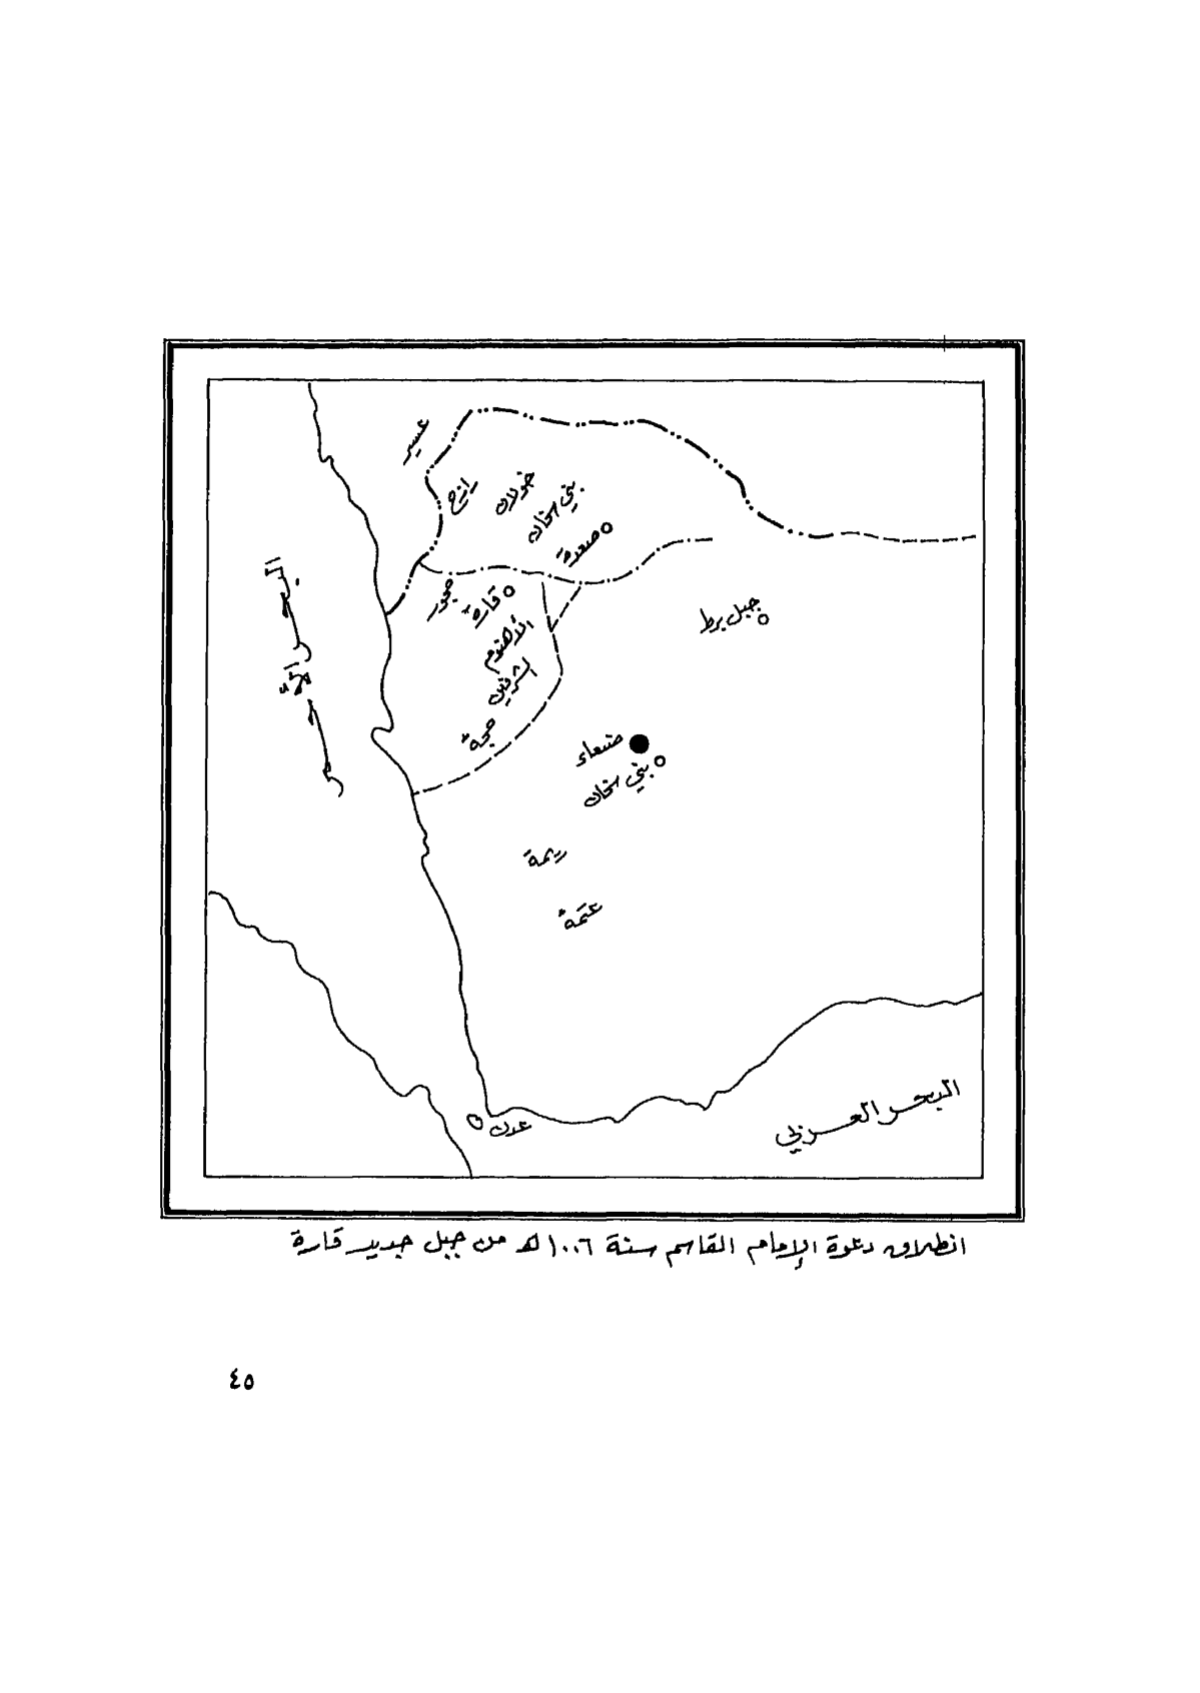 عسير
رازح
خولان
بني سخان
صعدة
حجور
قارة
الأهنوم
الشرفين
حجة
جبل برط
صنعاء
بني سخان
ريمة
عتمة
البحر الأحمر
عدن
البحر العربي
انطلاق دعوة الإمام القاسم سنة ١٠٠٦ هـ من جبل جديد قارة
٤٥